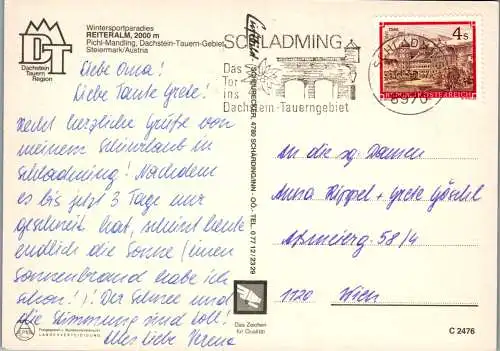 Wintersportparadies
REITERALM, 2000 m
Pichl-Mandling, Dachstein-Tauern-Gebiet
Steiermark/Austria
Dachstein
Tauern
Region
Liebe Oma!
Liebe Tante Grete!
Recht herzliche Grüße von
meinem Schiurlaub in
Schladming! Nachdem
es bis jetzt 3 Tage nur
geschneit hat, scheint heute
endlich die Sonne (einen
Sonnenbrand habe ich
schon!)! Der Schnee und
die Stimmung sind toll!
Alles Liebe Verena
4780 SCHÄRDING/INN - OÖ - TEL. 0 77 12/23 29
Das Zeichen
für Qualität
SCHLADMING
Das
Tor
ins
Dachstein-Tauerngebiet
8970
4 S
REPUBLIK ÖSTERREICH
An die sg. Damen
Anna Rippel + Grete Göschl
58/4
1120 Wien
LANDESVERTEIDIGUNG
C 2476